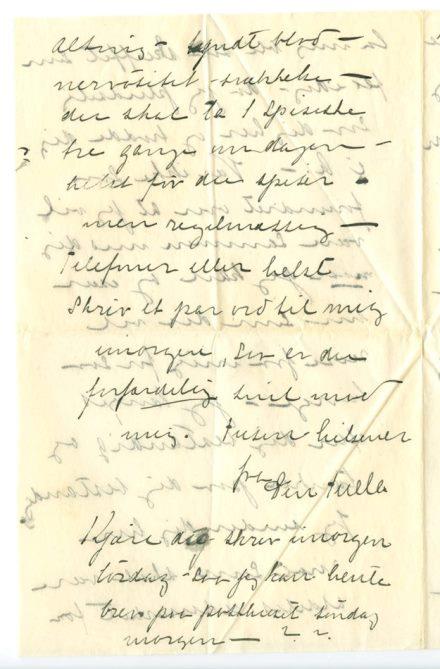 Alting – tyndt blod –
nervøsitet – svækkelse –
du skal ta 1 Spiseske
tre gange om dagen –
helst før du spiser –
men regelmæssig –
Telefoner eller helst
Skriv et par ord til mig
imorgen, Lov er du
forfærdelig sint mod
mig. Tusen hilsener
fra Din Tulla
Kjære dig skriv imorgen
lørdag – saa jeg kan hente
brev paa posthuset søndag
morgen – ? ?